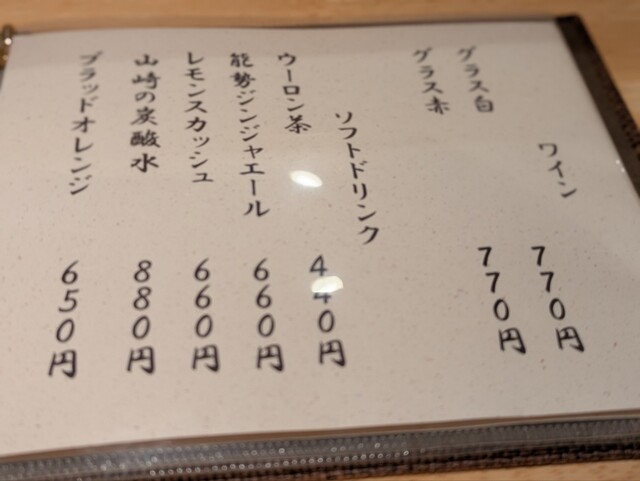 ワイン
グラス白 770円
グラス赤 770円
ソフトドリンク
ウーロン茶 440円
能勢ジンジャエール 660円
レモンスカッシュ 660円
山崎の炭酸水 880円
ブラッドオレンジ 650円